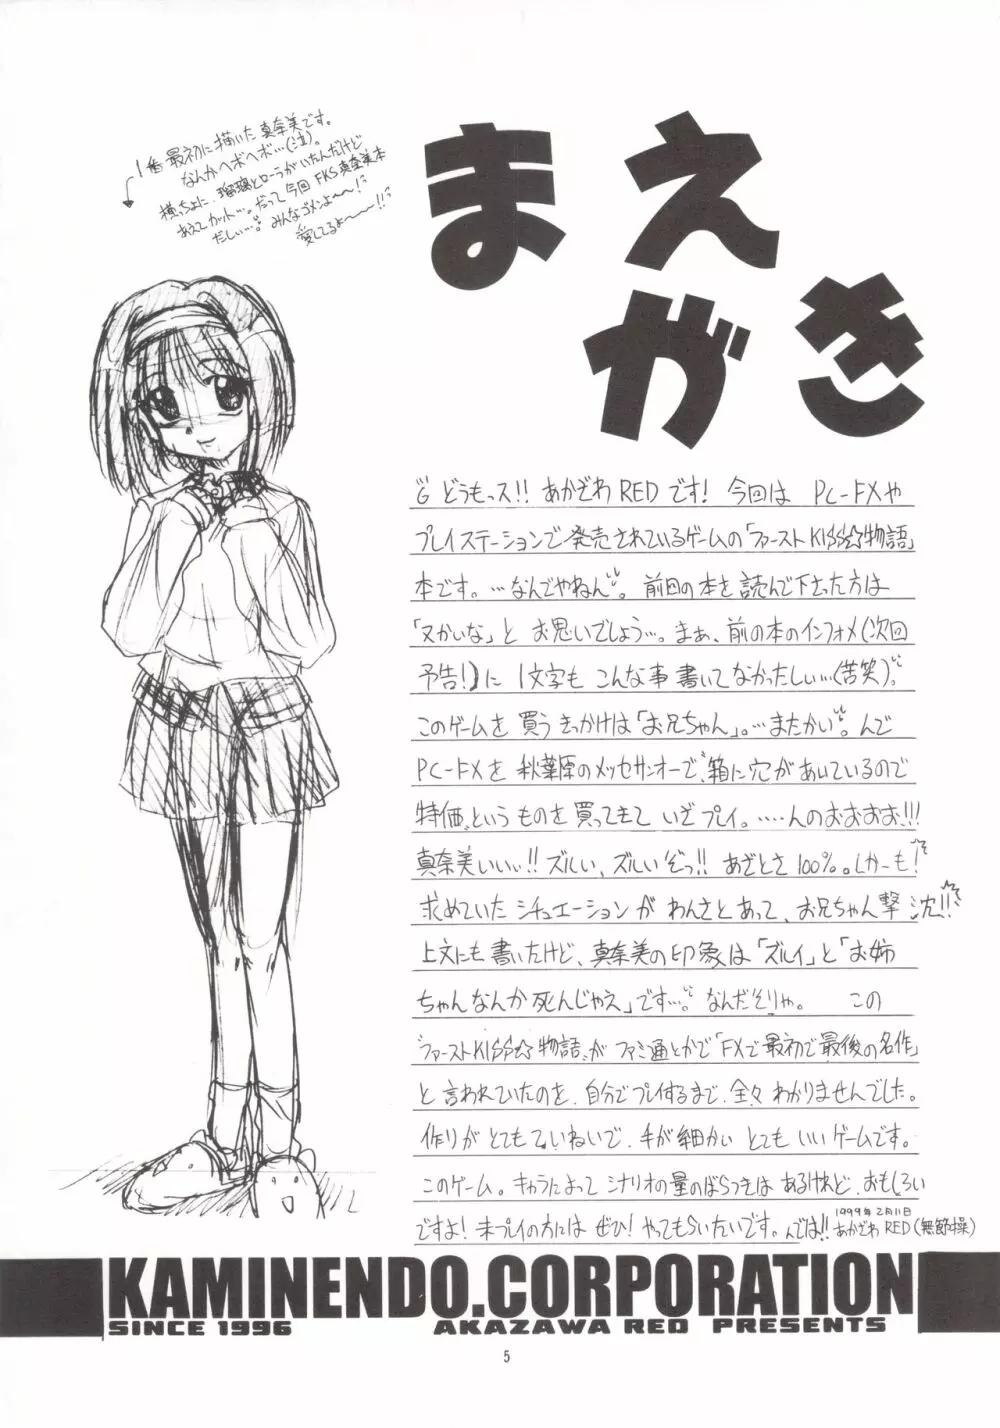 1番最初に描いた真奈美です。
なんかヘボヘボ…(泣)。
横っちょに、瑠璃とローラがいたんだけど
あえてカット…。だって今回FKS真奈美本
だしぃ…。みんなゴメンよ〜〜!
愛してるよ〜〜〜!!
まえ
がき
どうもっス!! あかざわREDです! 今回は PC-FXや
プレイステーションで発売されているゲームの「ファーストKISS☆物語」
本です。…なんでやねん。前回の本を読んで下さった方は
「又かいな」と お思いでしょう…。まぁ、前の本のインフォメ(次回
予告!)に 1文字も こんな事 書いてなかったしぃ…(苦笑)。
このゲームを買うきっかけは「お兄ちゃん」。…またかい。んで
PC-FXを 秋葉原のメッセサンオーで、箱に穴があいているので
特価、というものを買ってきて いざプレイ。……んのおおおお!!!
真奈美いいぃ!! ズルい、ズルいぞっ!! あざとさ100%。しかーも!
求めていたシチュエーションが わんさとあって、お兄ちゃん撃沈!!
上文にも書いたけど、真奈美の印象は「ズルイ」と「お姉
ちゃんなんか死んじゃえ」です…。なんだそりゃ。 この
ファーストKISS☆物語、が ファミ通とかで「FXで最初で最後の名作」
と言われていたのを、自分でプレイするまで、全々わかりませんでした。
作りがとてもていねいで、手が細かい とても いいゲームです。
このゲーム。キャラによって シナリオの量のばらつきは あるけれど、おもしろい
ですよ! 未プレイの方には ぜひ! やってもらいたいです。んでは!!
1999年2月11日
あかざわ RED(無節操)
KAMINENDO.CORPORATION
SINCE 1996 AKAZAWA RED PRESENTS
5